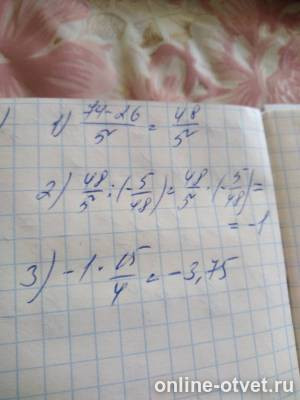 1) 74-26/5 = 48/5
2) 48/5 : (-5/48) = 48/5 · (-5/48) =
= -1
3) -1 · 15/4 = -3,75
online-otvet.ru